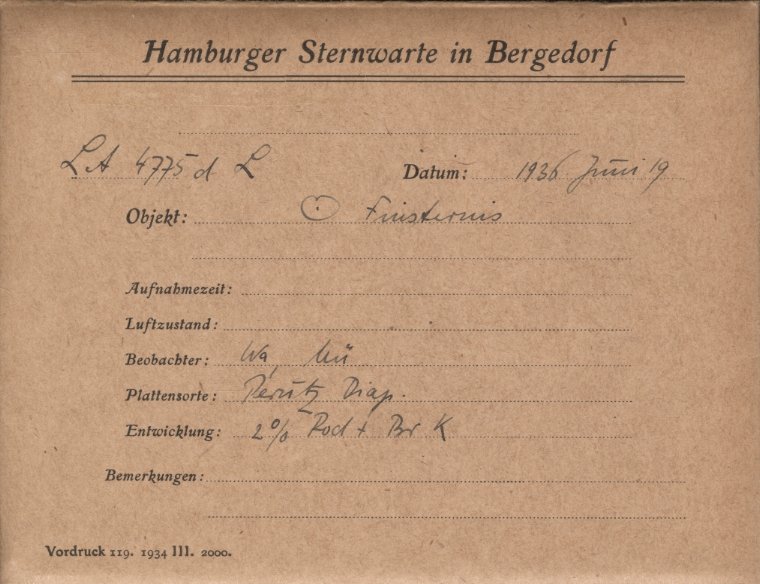 Hamburger Sternwarte in Bergedorf
LA 4775 d L Datum: 1936 Juni 19
Objekt: ☉ Finsternis
Aufnahmezeit:
Luftzustand:
Beobachter: Wa, Mü
Plattensorte: Perutz Diap.
Entwicklung: 2% Rod + Br K
Bemerkungen:
Vordruck 119. 1934 III. 2000.